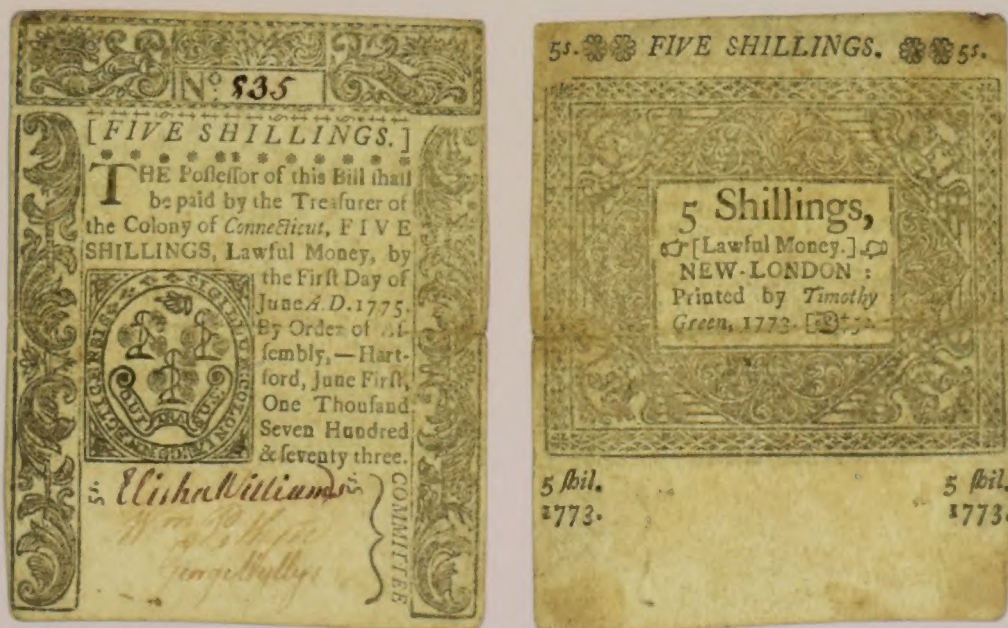 No. 535
[FIVE SHILLINGS.]
THE Poſſeſſor of this Bill ſhall
be paid by the Treaſurer of
the Colony of Connecticut, FIVE
SHILLINGS, Lawful Money, by
the Firſt Day of
June A.D. 1775.
By Order of Aſ-
ſembly, — Hart-
ford, June Firſt,
One Thouſand
Seven Hundred
& ſeventy three.
5s. Elisha Williams 5s.
George Wyllys
COMMITTEE
5s. FIVE SHILLINGS. 5s.
5 Shillings,
[Lawful Money.]
NEW-LONDON :
Printed by Timothy
Green, 1773.
5 ſhil. 5 ſhil.
1773. 1773.